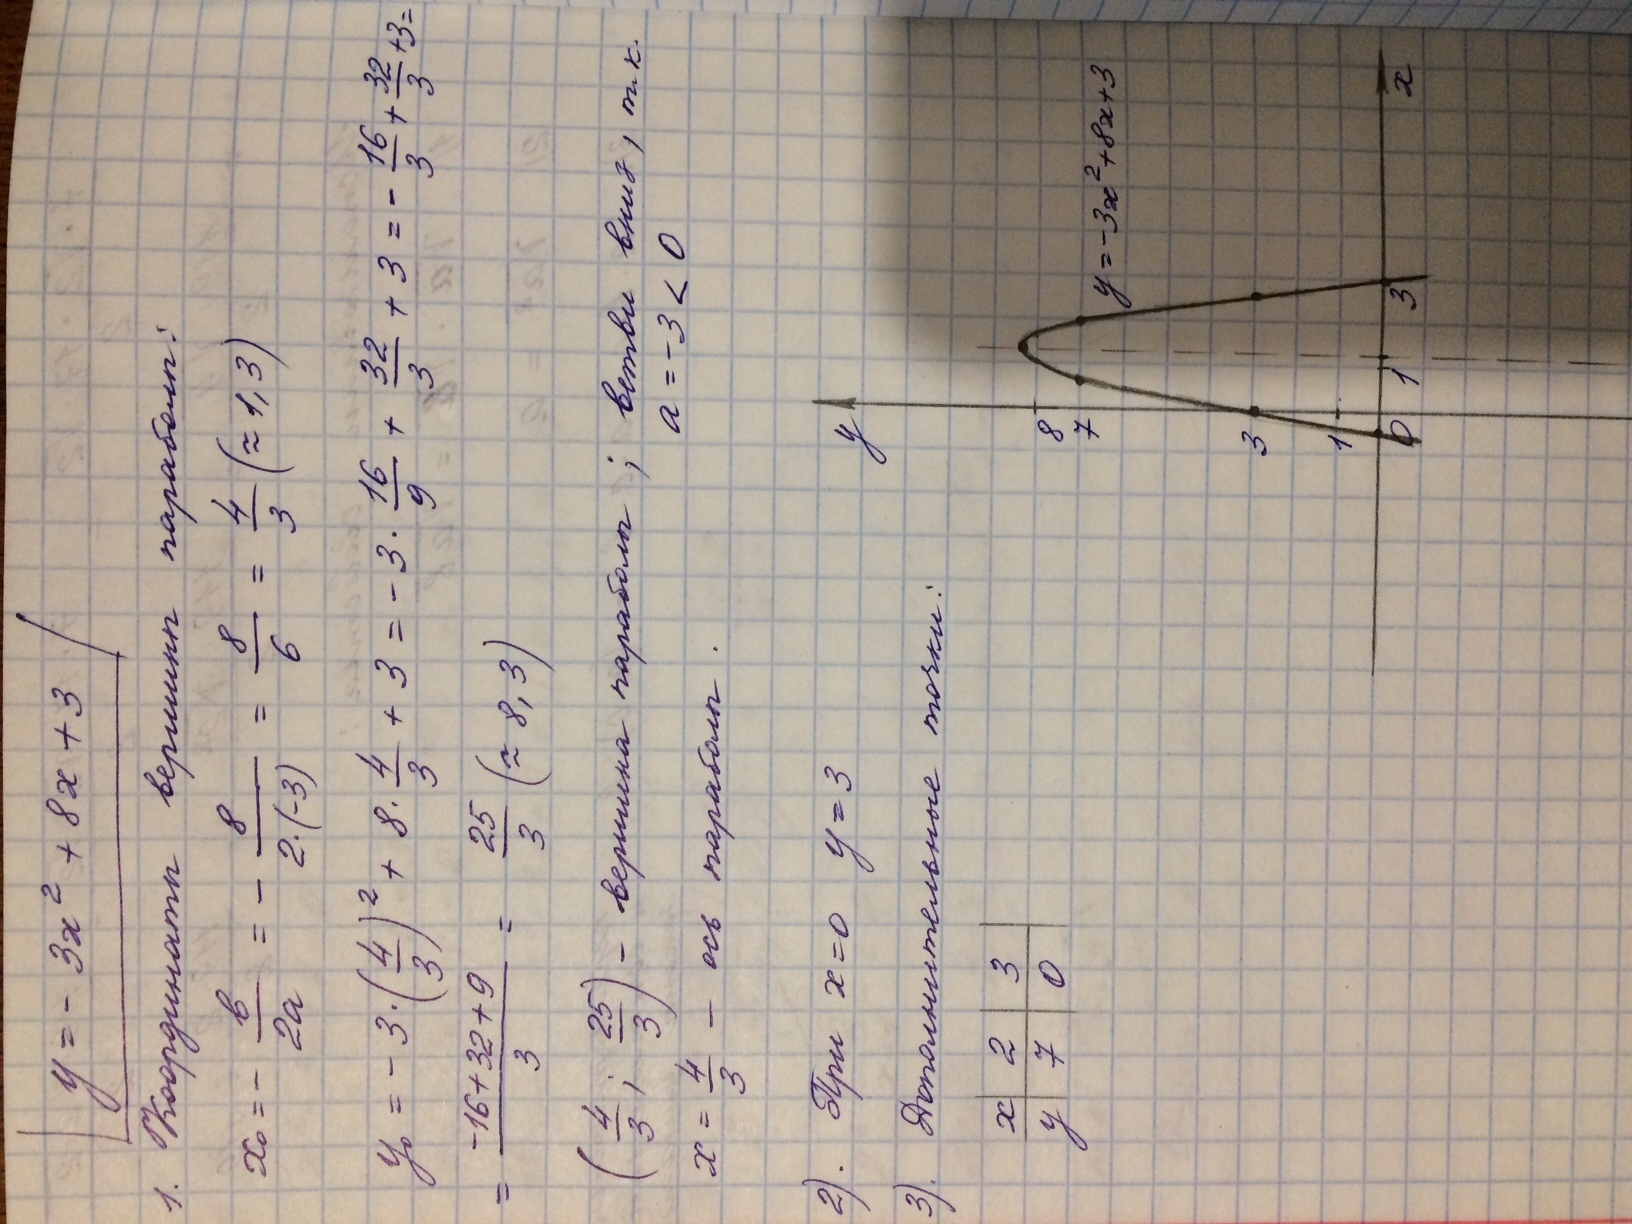 y = - 3x² + 8x + 3
1. Координаты вершины параболы:
x₀ = - в/2а = - 8/(2·(-3)) = 8/6 = 4/3 (≈ 1,3)
y₀ = - 3·(4/3)² + 8·4/3 + 3 = - 3·16/9 + 32/3 + 3 = - 16/3 + 32/3 + 3 =
= (-16+32+9)/3 = 25/3 (≈ 8,3)
(4/3; 25/3) – вершина параболы; ветви вниз, т.к.
а = -3 < 0
x = 4/3 – ось параболы.
2). При x = 0 y = 3
3). Дополнительные точки:
x 2 3
y 7 0
y
8
7
3
1
0
1
3
x
y = -3x² + 8x + 3